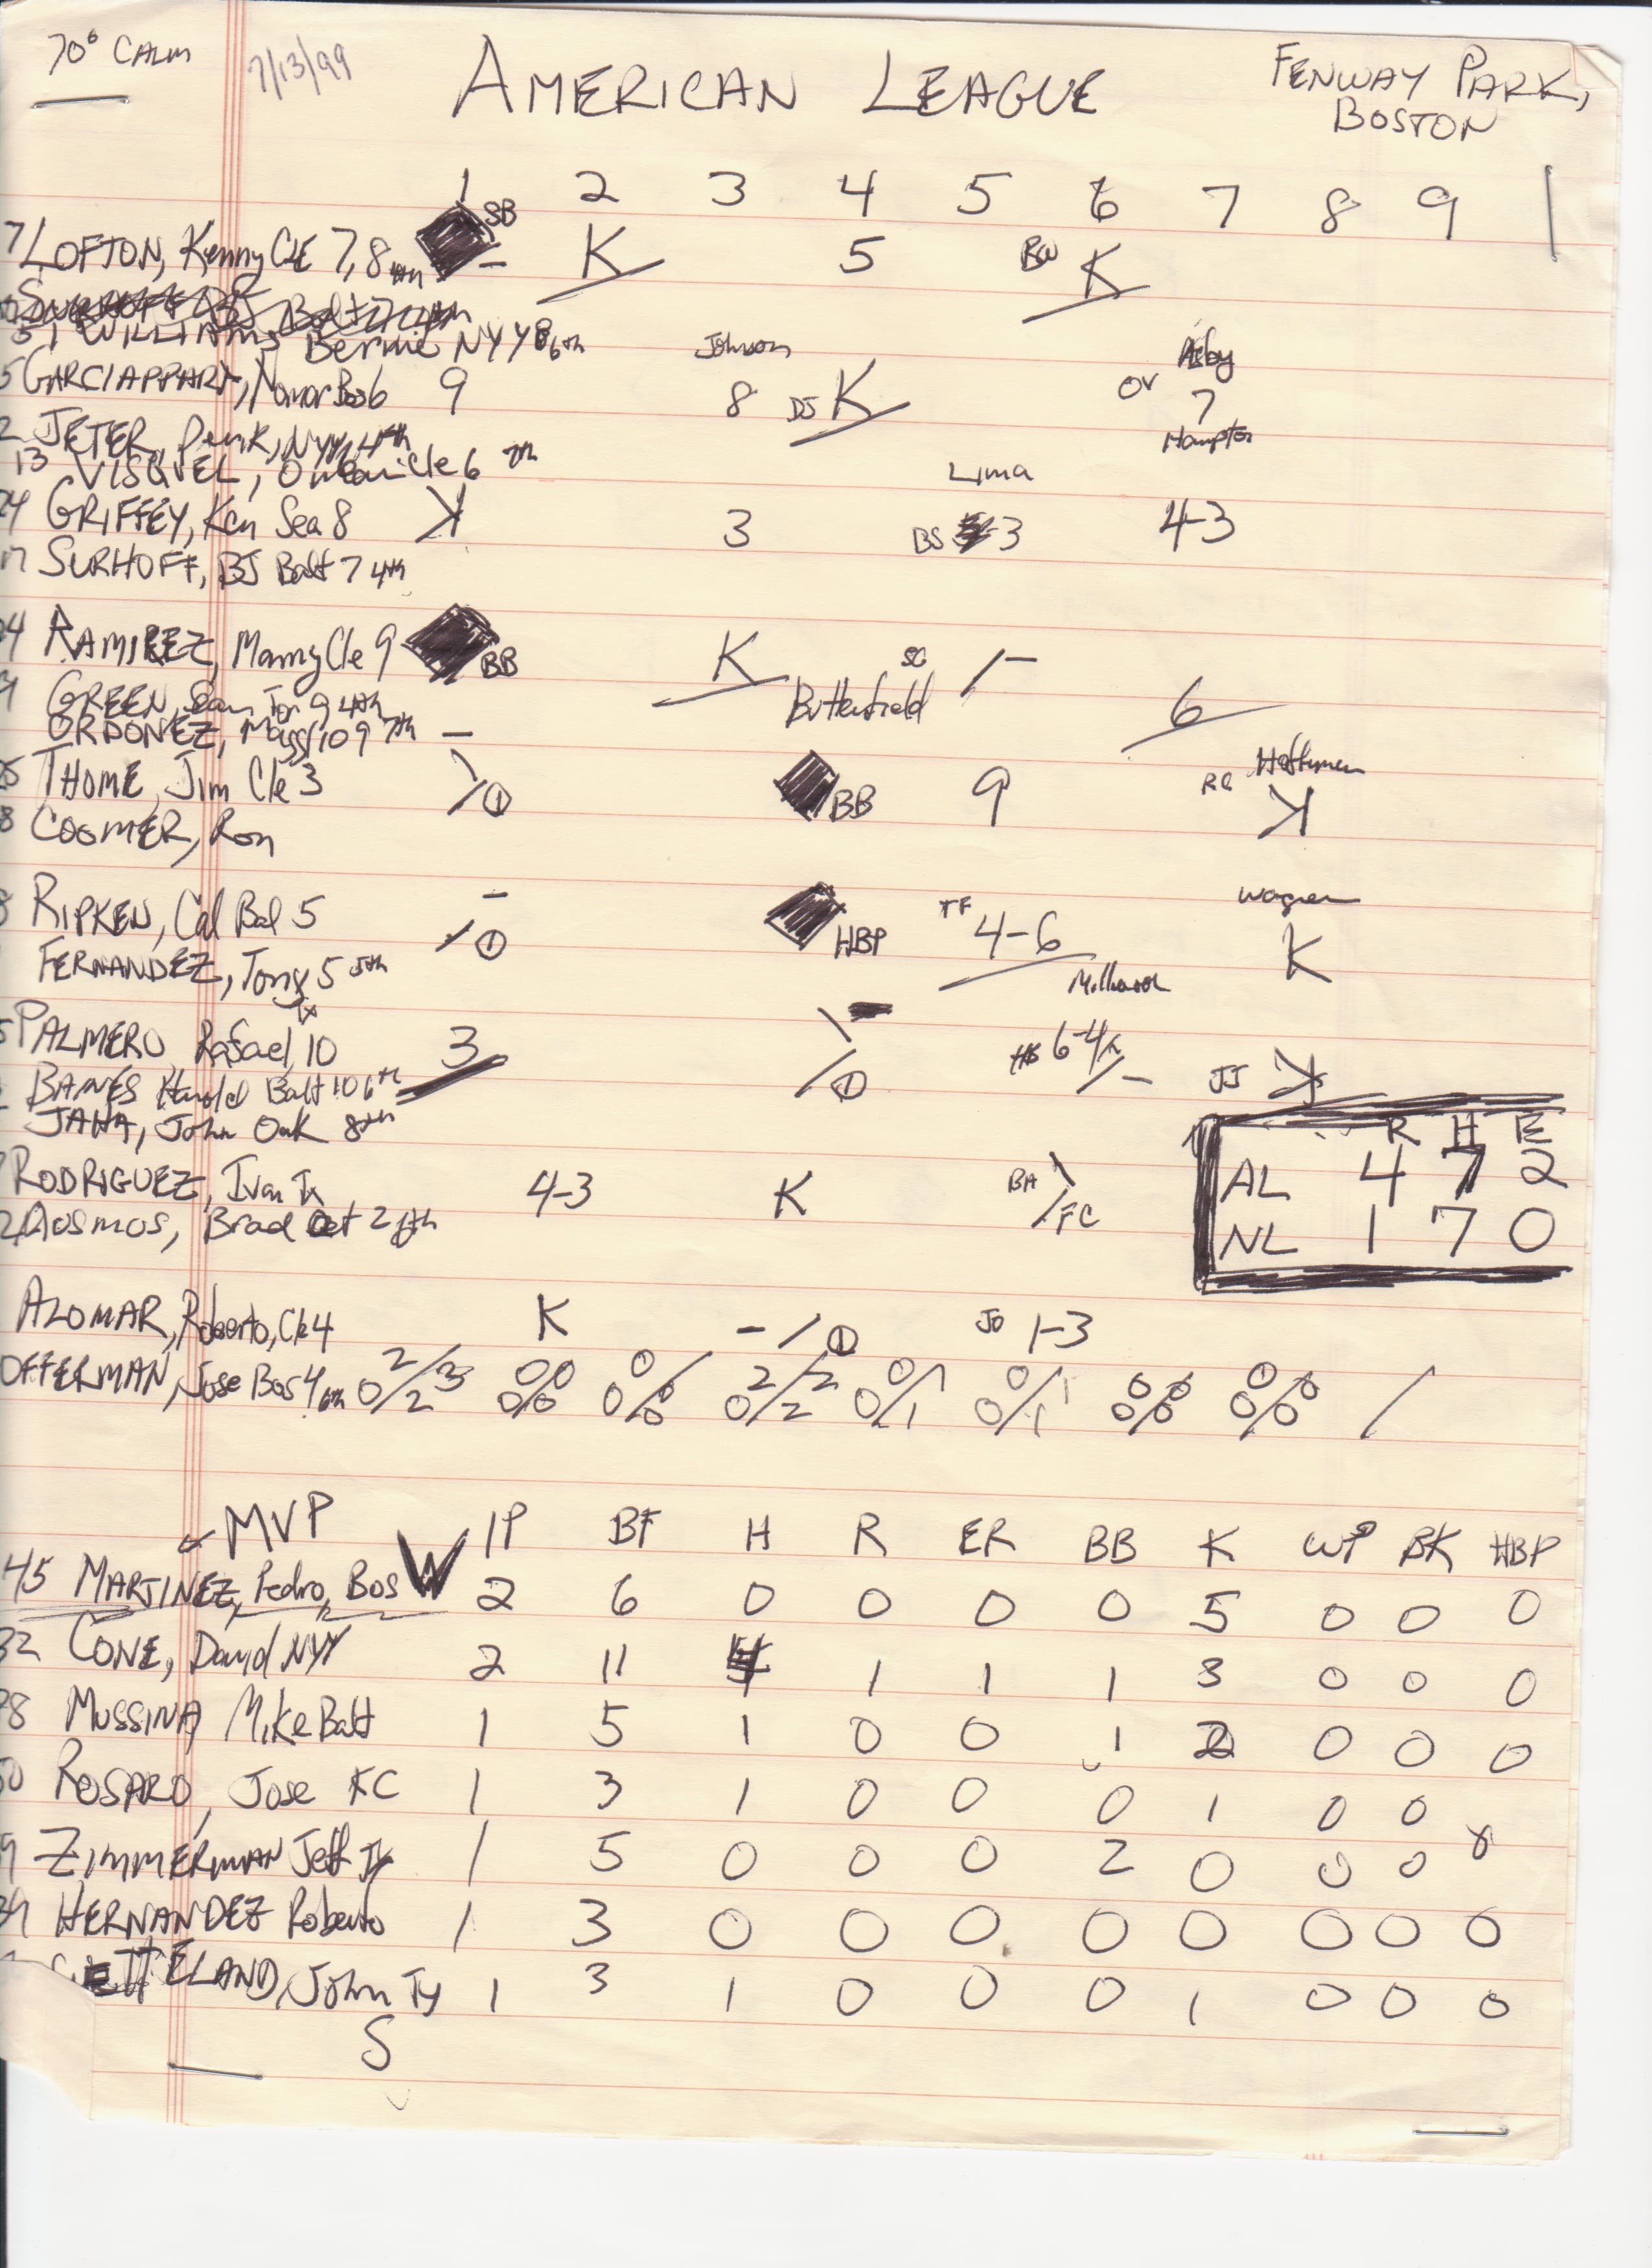 70° CALM
7/13/99
AMERICAN LEAGUE
FENWAY PARK,
BOSTON
1 2 3 4 5 6 7 8 9
7 LOFTON, Kenny CLE 7, 8 SB – K 5 BW K
51 WILLIAMS Bernie NYY 8 6th Johnson
5 GARCIAPPARA, Nomar Bos 6 9 8 DJ K OV 7
2 JETER, Derek, NYY 4th Hampton
13 VISQUEL, Omar Cle 6 7th Lima
24 GRIFFEY, Ken Sea 8 K 3 BS 3 4-3
17 SURHOFF, BJ Balt 7 4th
24 RAMIREZ, Manny Cle 9 BB K SG / – 6
GREEN, Sean Tor 9 4th Butterfield
ORDONEZ, Magg 10 9 7th
25 THOME, Jim Cle 3 – / ① BB 9 RC K
8 COOMER, Ron
8 RIPKEN, Cal Bal 5 – / ① HBP TF 4-6 Wagner K
FERNANDEZ, Tony 5 5th Millwood
Tx
PALMERO Rafael, 10 3 – / ① HB 6-4 / – JJ K
BAINES Harold Balt 10 6th
JAHA, John Oak 8th
R H E
AL 4 7 2
NL 1 7 0
RODRIGUEZ, Ivan Tx 4-3 K BA / FC
AUSMOS, Brad Det 2 6th
ALOMAR, Roberto, Cle 4 K – / ① JO 1-3
OFFERMAN, Jose Bos 4 6th 2/3 0/2 0/0 0/0 0/ 0/0 2/2 0/2 0/1 0/1 0/1 0/1 0/0 0/0 0/0 0/0 /
MVP IP BF H R ER BB K WP BK HBP
45 MARTINEZ, Pedro, BOS W 2 6 0 0 0 0 5 0 0 0
CONE, David NYY 2 11 4 1 1 1 3 0 0 0
MUSSINA Mike Balt 1 5 1 0 0 1 2 0 0 0
ROSARO, Jose KC 1 3 1 0 0 0 1 0 0
ZIMMERMAN Jeff Tx 1 5 0 0 0 2 0 0 0 0
HERNANDEZ Roberto 1 3 0 0 0 0 0 0 0 0
WETTELAND, John Tx 1 3 1 0 0 0 1 0 0 0
S